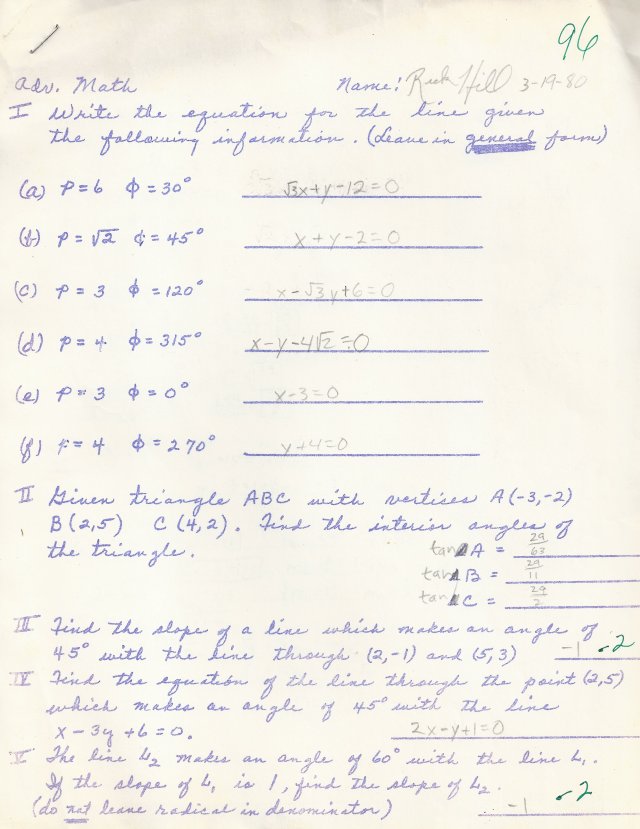 96
Adv. Math Name: Rick Hill 3-19-80
I Write the equation for the line given
the following information. (Leave in general form)
(a) P=6 ϕ=30° √3x+y-12=0
(b) P=√2 ϕ=45° x+y-2=0
(c) P=3 ϕ=120° x-√3y+6=0
(d) P=4 ϕ=315° x-y-4√2=0
(e) P=3 ϕ=0° x-3=0
(f) P=4 ϕ=270° y+4=0
II Given triangle ABC with vertices A(-3,-2)
B(2,5) C(4,2). Find the interior angles of
the triangle. tan A = 29/63
tan B = 29/11
tan C = 29/2
III Find the slope of a line which makes an angle of
45° with the line through (2,-1) and (5,3) -1 -2
IV Find the equation of the line through the point (2,5)
which makes an angle of 45° with the line
x-3y+6=0. 2x-y+1=0
V The line L2 makes an angle of 60° with the line L1.
If the slope of L1 is 1, find the slope of L2.
(do not leave radical in denominator) -1 -2